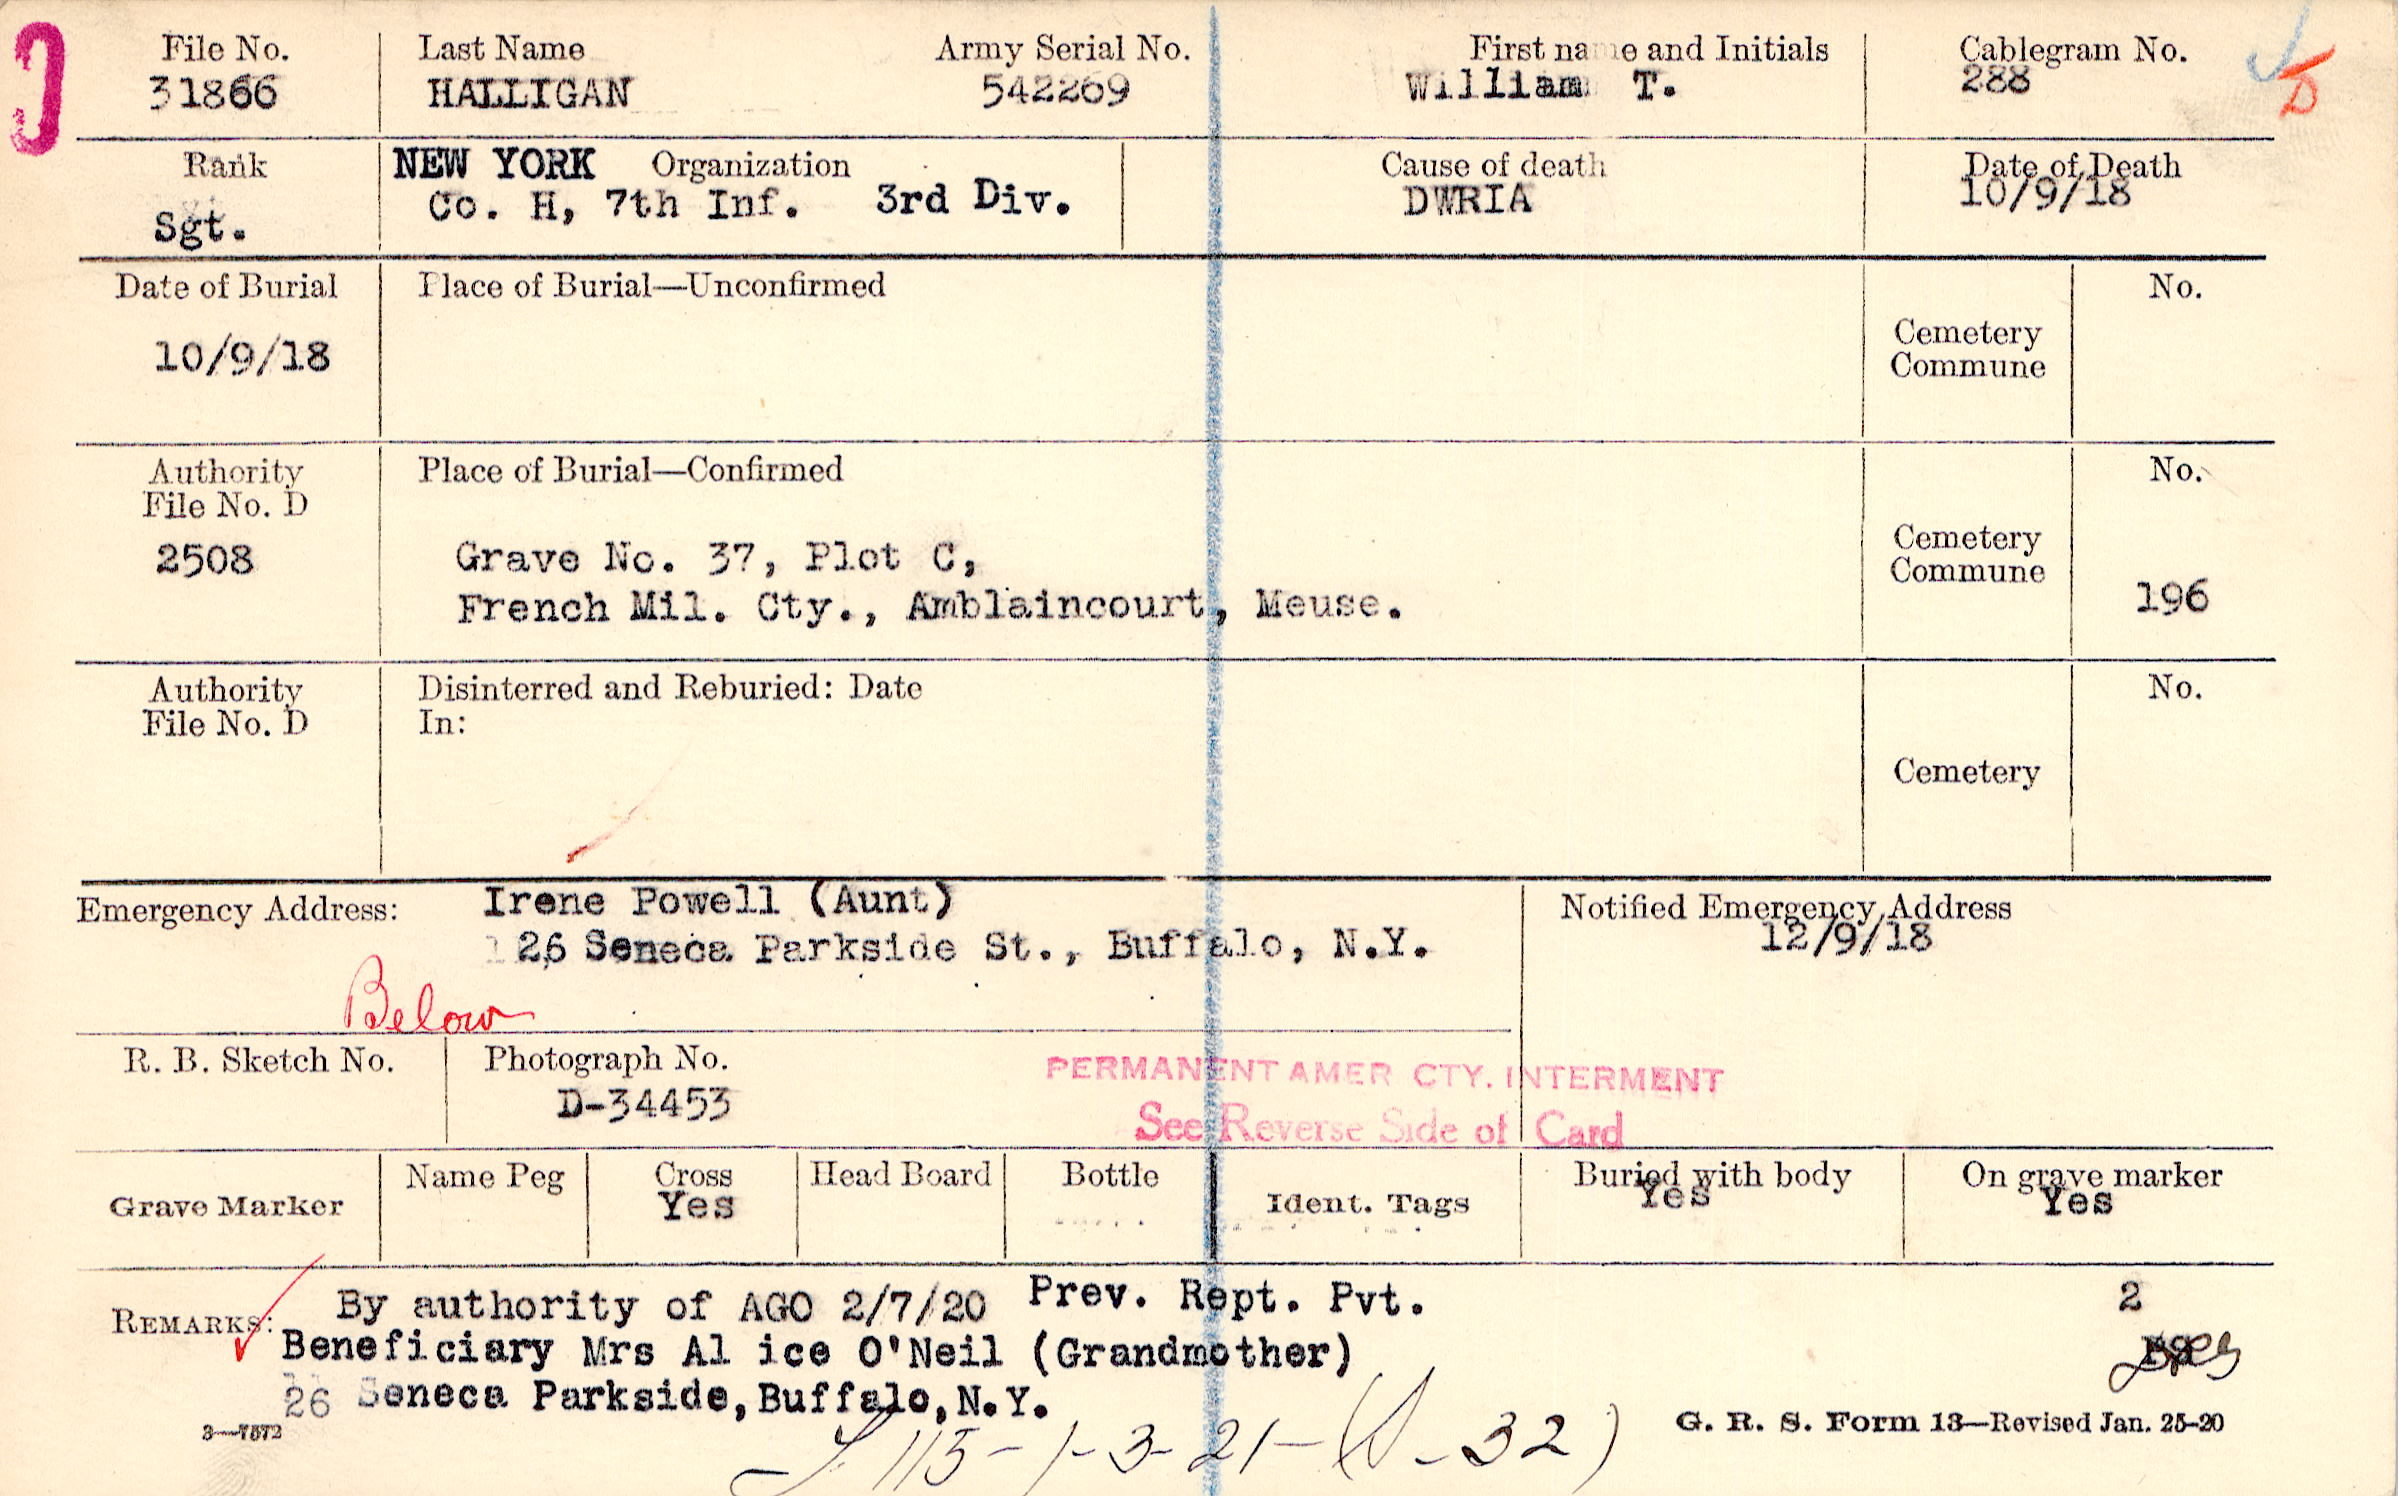 File No. Last Name Army Serial No. First name and Initials Cablegram No.
31866 HALLIGAN 542269 William T. 288
D
Rank NEW YORK Organization Cause of death Date of Death
Sgt. Co. H, 7th Inf. 3rd Div. DWRIA 10/9/18
Date of Burial Place of Burial—Unconfirmed No.
10/9/18 Cemetery
Commune
Authority Place of Burial—Confirmed No.
File No. D
2508 Grave No. 37, Plot C, Cemetery
Commune
French Mil. Cty., Amblaincourt, Meuse. 196
Authority Disinterred and Reburied: Date No.
File No. D In:
Cemetery
Emergency Address: Irene Powell (Aunt) Notified Emergency Address
126 Seneca Parkside St., Buffalo, N.Y. 12/9/18
Below
R. B. Sketch No. Photograph No.
D-34453
PERMANENT AMER CTY. INTERMENT
See Reverse Side of Card
Grave Marker Name Peg Cross Head Board Bottle Ident. Tags Buried with body On grave marker
Yes Yes Yes
REMARKS: By authority of AGO 2/7/20 Prev. Rept. Pvt. 2
Beneficiary Mrs Al ice O'Neil (Grandmother)
26 Seneca Parkside, Buffalo, N.Y.
3—7572
115-1-3-21-
32)
G. R. S. Form 13—Revised Jan. 25-20